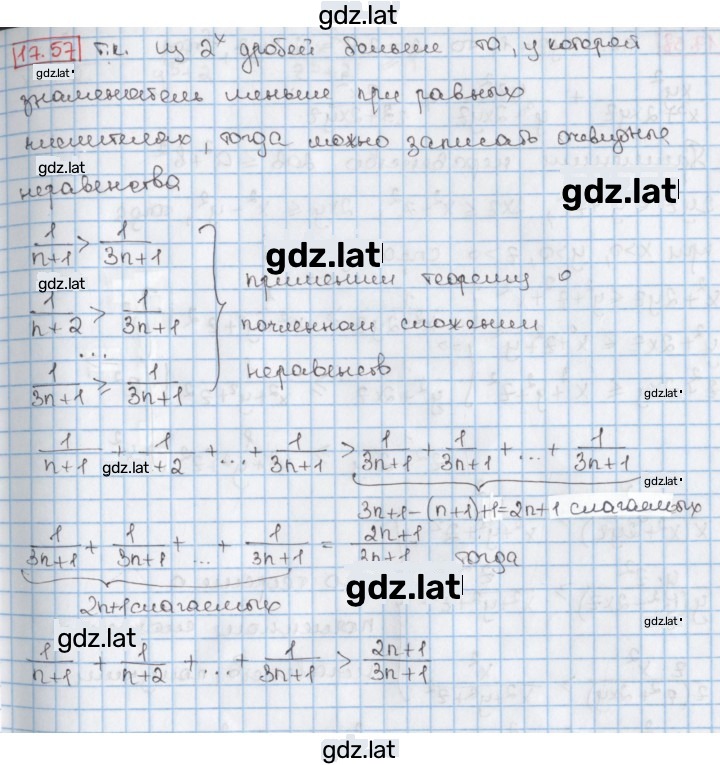 gdz.lat
17.57 т.к. из 2х дробей больше та, у которой
gdz.lat
знаменатель меньше при равных
числителях, тогда можно записать очевидные
gdz.lat
неравенства
gdz.lat
1/(n+1) > 1/(3n+1)
gdz.lat
применим теорему о
gdz.lat
1/(n+2) > 1/(3n+1)
почленном сложении
...
1/(3n+1) ≥ 1/(3n+1)
неравенств
gdz.lat
1/(n+1) + 1/(n+2) + ... + 1/(3n+1) > 1/(3n+1) + 1/(3n+1) + ... + 1/(3n+1)
gdz.lat
gdz.lat
3n+1-(n+1)+1=2n+1 слагаемых
1/(3n+1) + 1/(3n+1) + ... + 1/(3n+1) = (2n+1)/(3n+1) тогда
gdz.lat
2n+1 слагаемых
gdz.lat
gdz.lat
1/(n+1) + 1/(n+2) + ... + 1/(3n+1) > (2n+1)/(3n+1)
gdz.lat